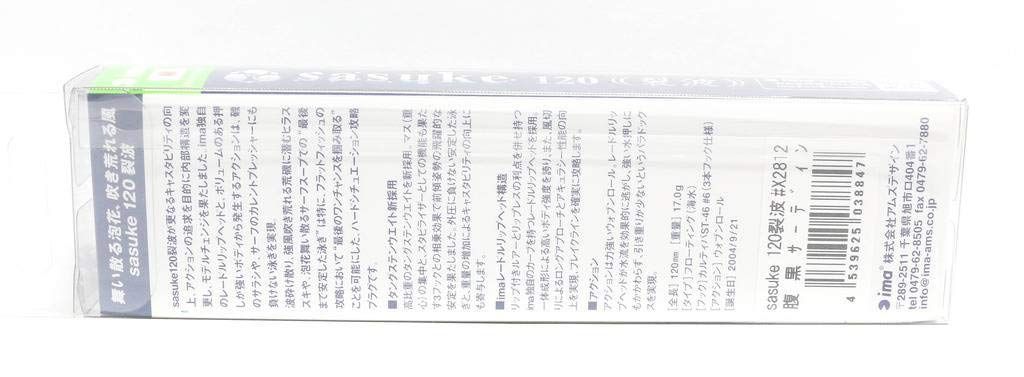 sasuke 120
舞い散る泡花、吹き荒れる風
sasuke 120 裂波
sasuke120裂波が更なるキャスタビリティの向
上、アクションの追求を目的に内部構造を変
更し、モデルチェンジを果たしました。ima独自
のレードルリップヘッドと、ボリュームのある押
しが強いボディから発生するアクションは、磯
のサラシや、サーフのカレントプレッシャーにも
負けない泳ぎを実現。
波砕け散り、強風吹き荒れる荒磯に潜むヒラス
スキや、泡花舞い散るサーフスープでの“最後
まで安定した泳ぎ”は特に、フラットフィッシュの
攻略において“最後のワンチャンスを掴み取る”
ことを可能にした、ハードシチュエーション攻略
プラグです。
■タングステンウエイト新採用
高比重のタングステンウエイトを新採用。マス(重
心)の集中と、スタビライザーとしての機能も果た
すフックとの相乗効果で前傾姿勢の飛躍的な
安定を果たしました。外圧に負けない安定した泳
ぎと、重量の増加によるキャスタビリティの向上に
も寄与します。
■imaレードルリップヘッド構造
リップ付きルアーとリップレスの利点を併せ持つ
ima独自のカーブを持つレードルリップヘッドを採用。
一体成形による高いボディ強度を誇り、また、風切
りによるロングアプローチとアキュラシー性能の向
上を実現、ブレイクラインを確実に攻略。
■アクション
アクションは力強いウォブンロール。レードルリッ
プヘッドが水流を効果的に逃がし、強い水押しに
もかかわらず、引き重りが少ないというパラドック
スを実現。
[全長] 120mm [重量] 17.0g
[タイプ] フローティング(海水)
[フック] カルティバST-46 #6(3本フック仕様)
[アクション] ウォブンロール
[誕生日] 2004/9/21
sasuke 120裂波 #X2812
腹黒サーディン
4 539625 103884
ima® 株式会社アムズデザイン
〒289-2511 千葉県旭市イ口404番1
tel 0479-62-8505 fax 0479-62-7880
info@ima-ams.co.jp